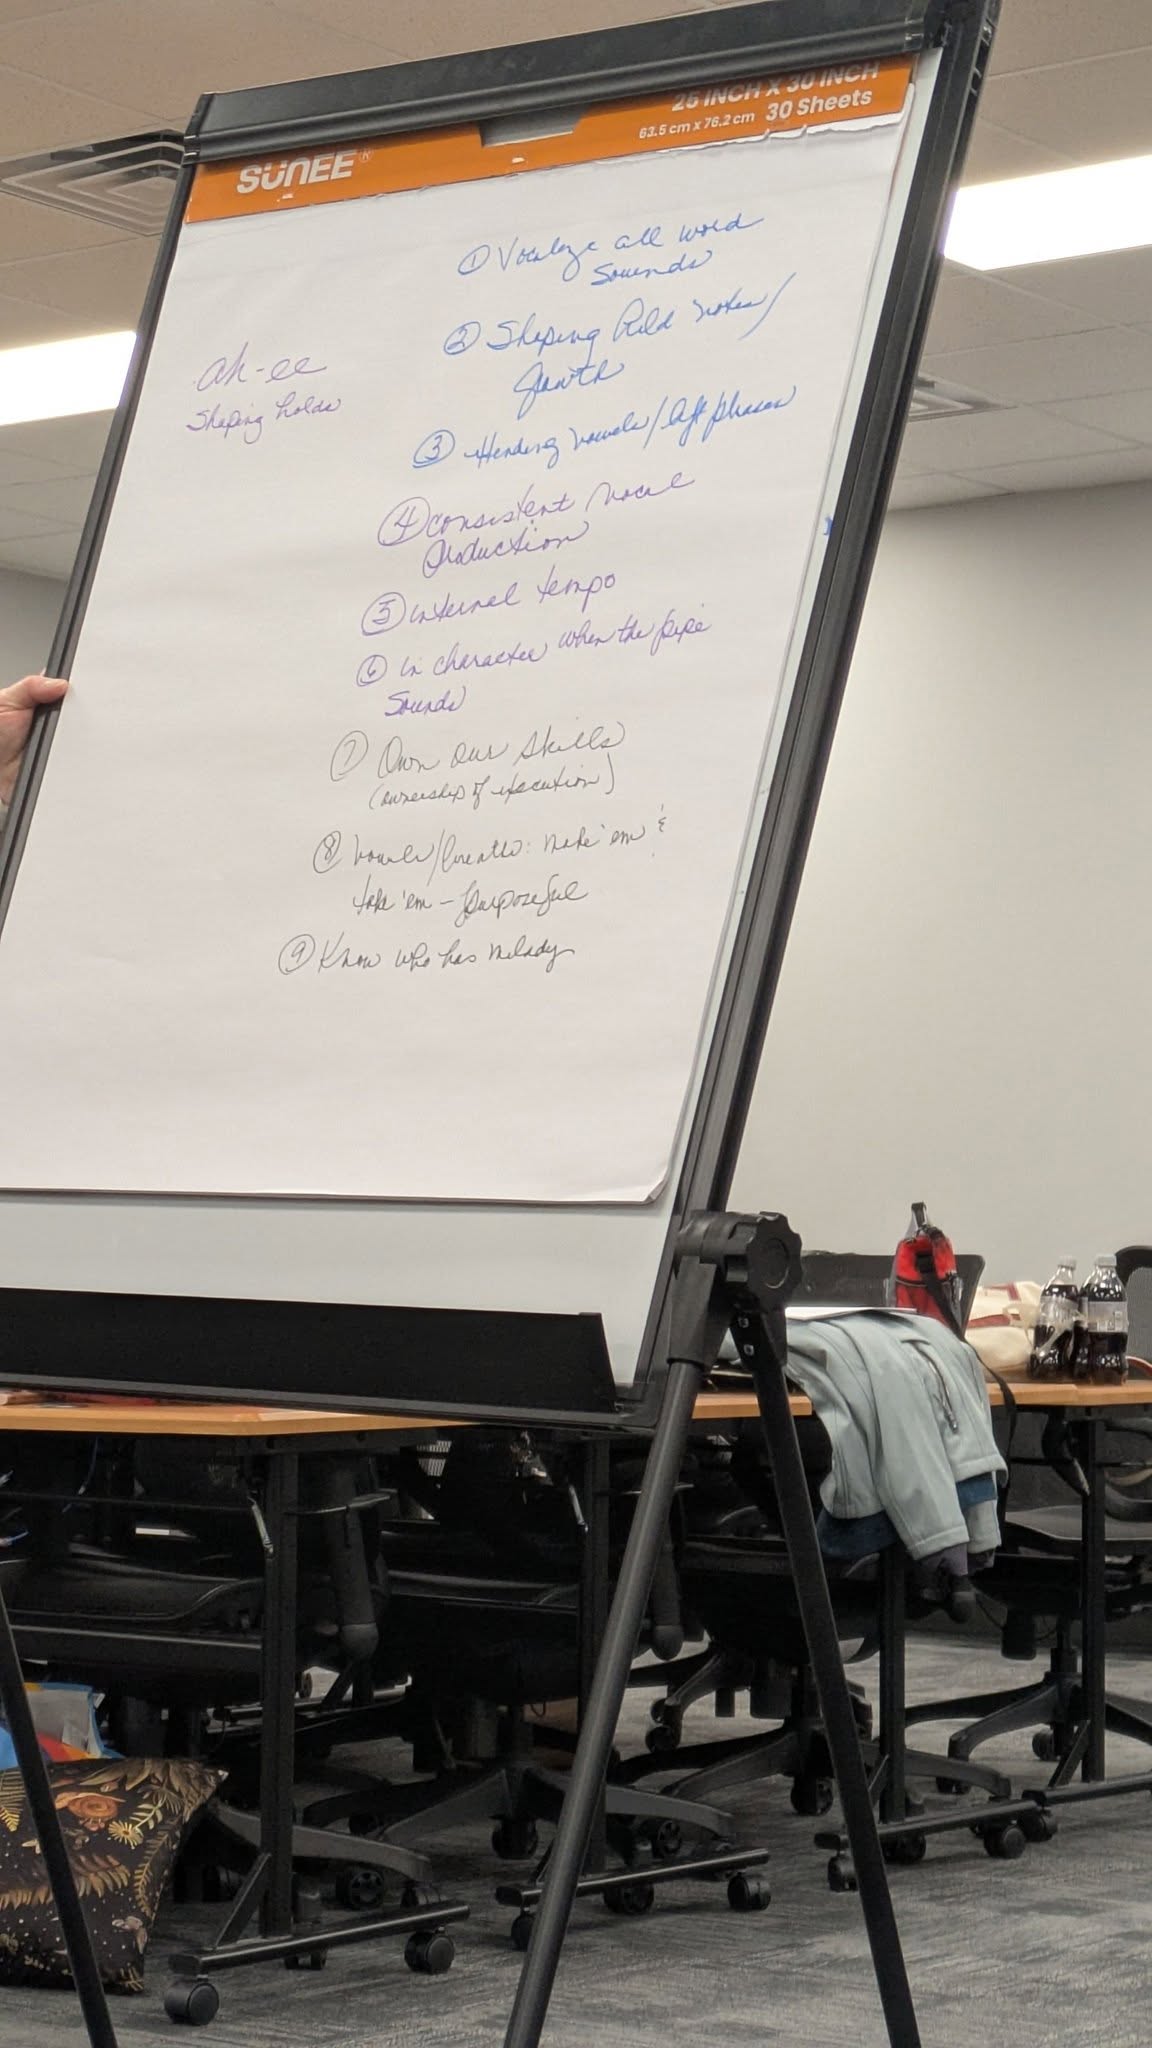 25 INCH X 30 INCH
63.5 cm x 76.2 cm 30 Sheets
SUNEE®
① Vocalize all word
sounds
② Shaping held notes/
growth
ah-ee
Shaping holds
③ vowels/lift phrases
④ consistent vocal
production
⑤ internal tempo
⑥ in character when the pipe
sounds
⑦ Own our skills
(ownership of execution)
⑧ Vowels/breaths: make 'em &
take 'em - purposeful
⑨ Know who has melody